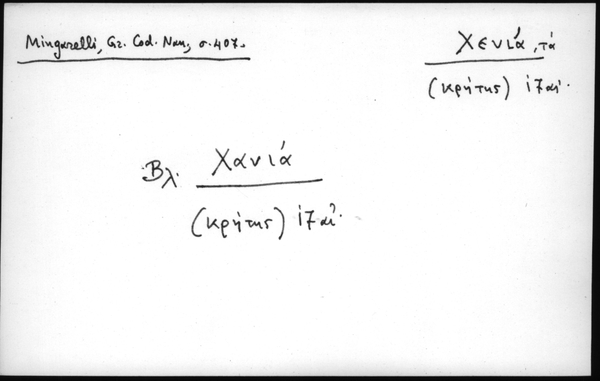 Mingarelli, Gr. Cod. Nan., σ. 407.
Χενιά, τά
(Κρήτης) ιζ αἰ.
Βλ. Χανιά
(Κρήτης) ιζ αἰ.